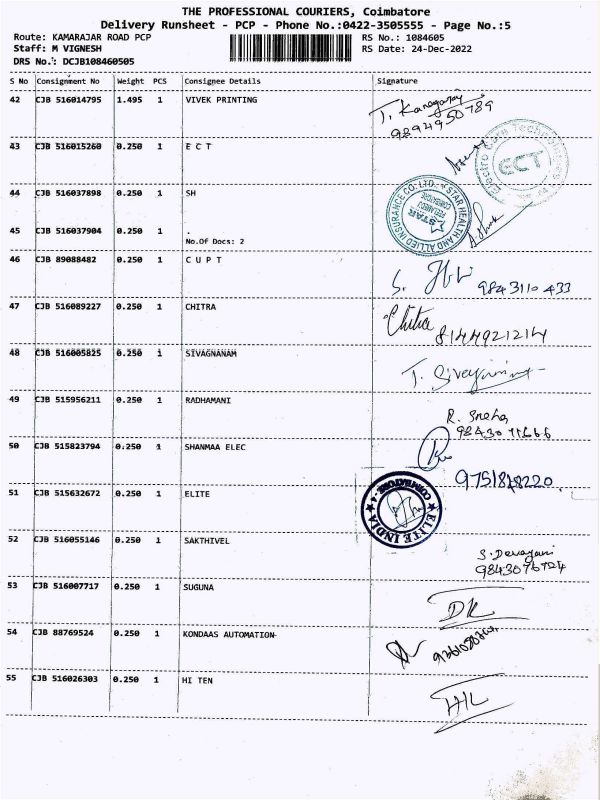 THE PROFESSIONAL COURIERS, Coimbatore
Delivery Runsheet - PCP - Phone No.:0422-3505555 - Page No.:5
Route: KAMARAJAR ROAD PCP RS No.: 1084605
Staff: M VIGNESH RS Date: 24-Dec-2022
DRS No.: DCJB108460505
S No Consignment No Weight PCS Consignee Details Signature
42 CJB 516014795 1.495 1 VIVEK PRINTING
9894950789
43 CJB 516015260 0.250 1 E C T
Electro Care ECT
44 CJB 516037898 0.250 1 SH
STAR HEALTH AND ALLIED INSURANCE CO. LTD. STAR COIMBATORE
45 CJB 516037904 0.250 1 .
No.Of Docs: 2
46 CJB 89088482 0.250 1 C U P T
9843110433
47 CJB 516089227 0.250 1 CHITRA
Chitra 8144921214
48 CJB 516005825 0.250 1 SIVAGNANAM
49 CJB 515956211 0.250 1 RADHAMANI
R. Sneha
50 CJB 515823794 0.250 1 SHANMAA ELEC
51 CJB 515632672 0.250 1 ELITE
ELITE INDIA COIMBATORE - 4
52 CJB 516055146 0.250 1 SAKTHIVEL
S. Devayani
53 CJB 516007717 0.250 1 SUGUNA
DK
54 CJB 88769524 0.250 1 KONDAAS AUTOMATION
55 CJB 516026303 0.250 1 HI TEN